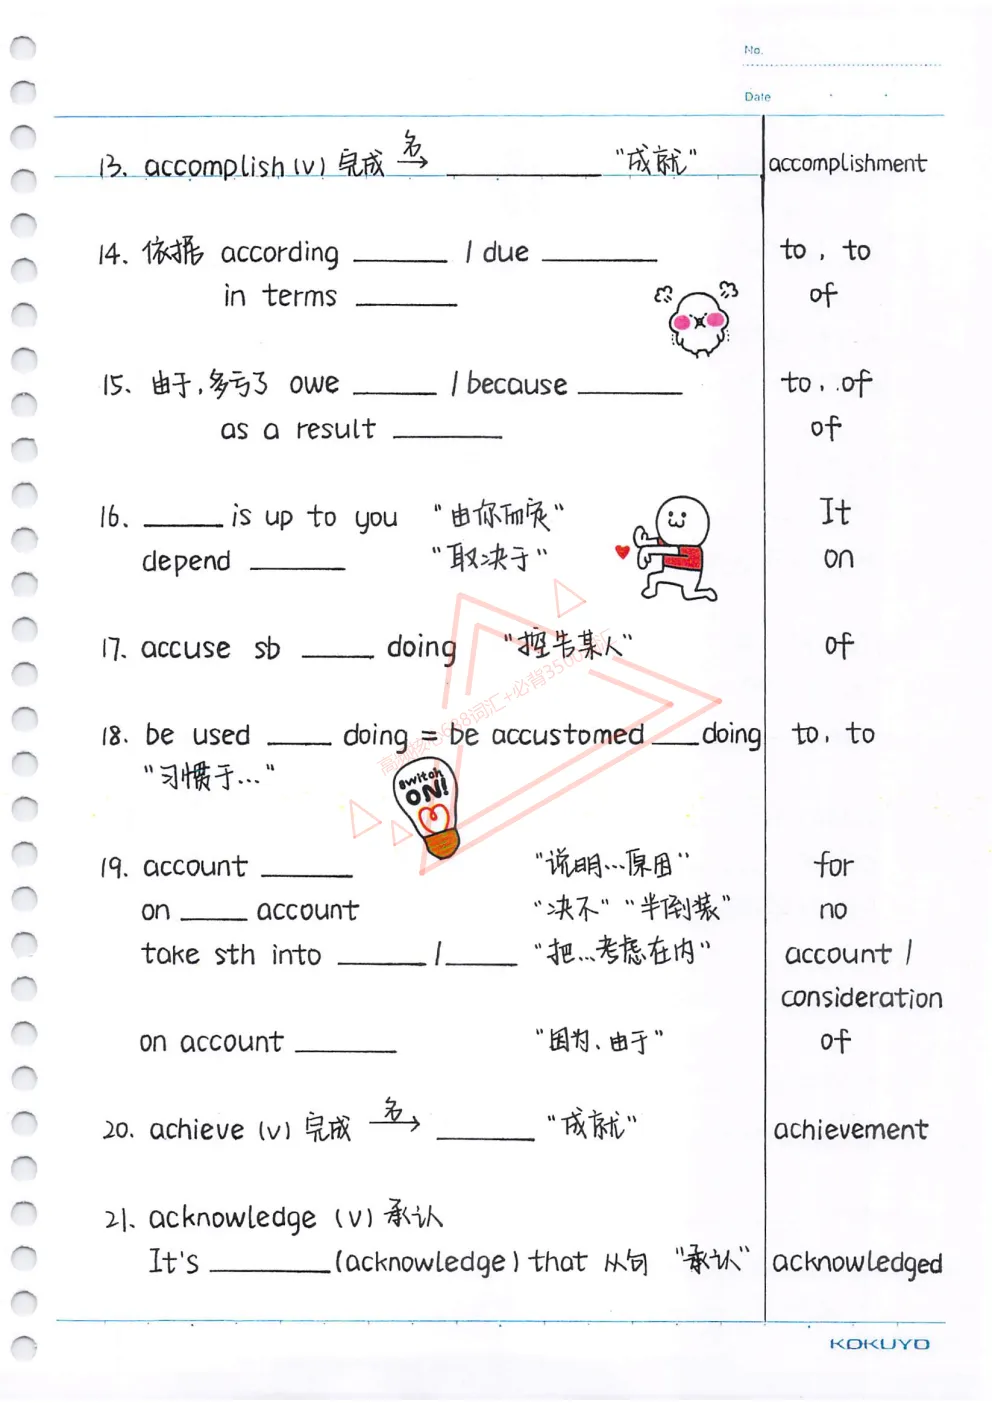 No.
Date
13. accomplish (v) 完成 名→ ________ "成就" accomplishment
14. 依据 according ______ / due ______ to , to
in terms ______ of
15. 由于,多亏了 owe ______ / because ______ to , of
as a result ______ of
16. ______ is up to you "由你而定" It
depend ______ "取决于" on
17. accuse sb _____ doing "控告某人" of
18. be used ____ doing = be accustomed ___ doing to, to
"习惯于..."
高频核心688词汇+必背3500词汇
switch
ON!
19. account ______ "说明...原因" for
on ____ account "决不" "半倒装" no
take sth into _____ / _____ "把...考虑在内" account /
consideration
on account ______ "因为、由于" of
20. achieve (v) 完成 名→ ______ "成就" achievement
21. acknowledge (v) 承认
It's ________ (acknowledge) that 从句 "承认" acknowledged
KOKUYO